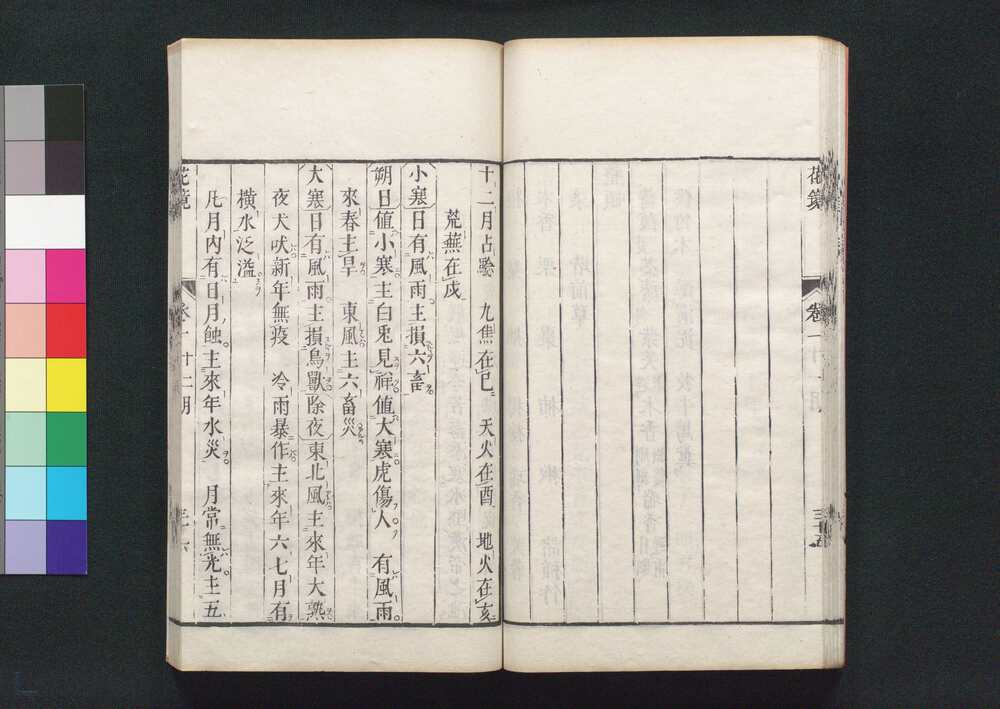 花鏡
卷一
三十五
十二月占驗　九焦在巳　天火在酉　地火在亥
荒蕪在戌
小寒日有風雨主損六畜
朔日值小寒主白兎見祥值大寒虎傷人　有風雨
來春主旱　東風主六畜災
大寒日有風雨主損鳥獸除夜東北風主來年大熟
夜犬吠新年無疫　冷雨暴作主來年六七月有
橫水泛溢
凡月內有日月蝕主來年水災　月常無光主五
花鏡
卷一　十二月